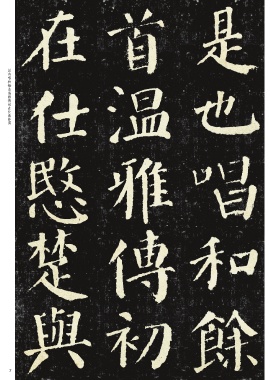 是也唱和餘
首温雅傳初
在仕愍楚與